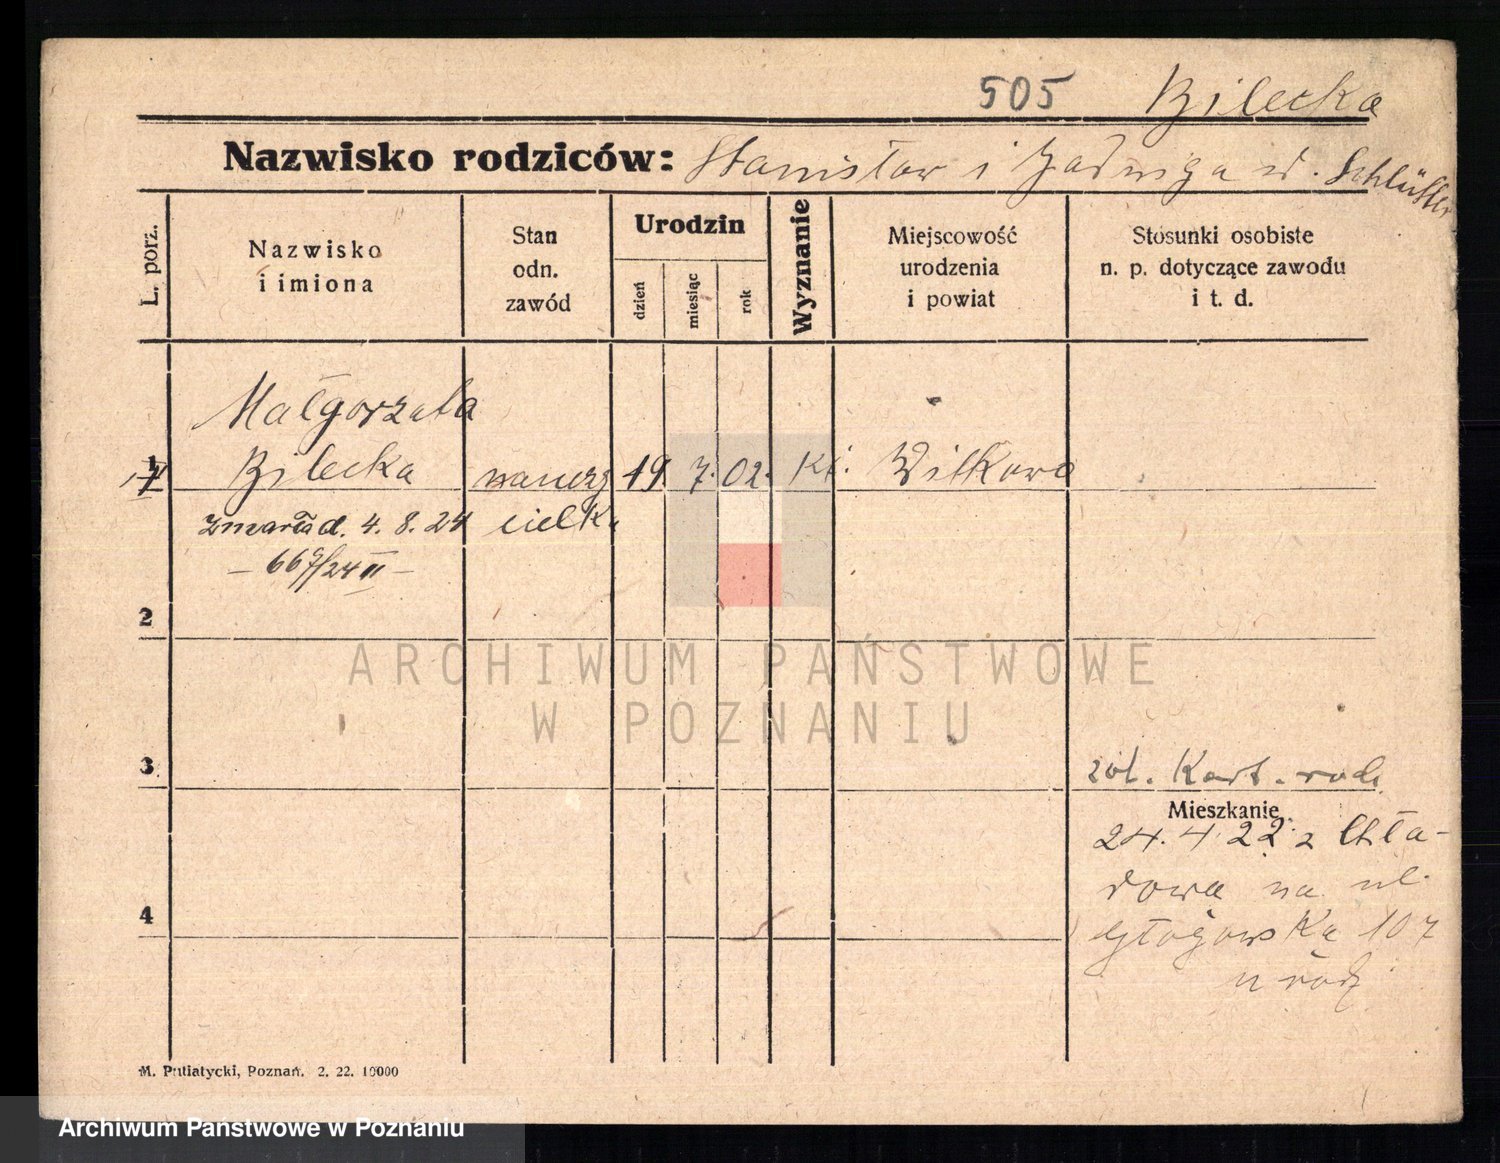 505 Bilecka
Nazwisko rodziców: Stanisław i Jadwiga d.
L. porz.
Nazwisko
i imiona
Stan
odn.
zawód
Urodzin
dzień
miesiąc
rok
Wyznanie
Miejscowość
urodzenia
i powiat
Stosunki osobiste
n. p. dotyczące zawodu
i t. d.
Małgorzata
1 Bilecka nauczy 19. 7. 02. kt. Witkowo
zmarła d. 4. 8. 24 cielka
2
ARCHIWUM PAŃSTWOWE
W POZNANIU
3
zob. Kart. rodz
Mieszkanie
24. 4 22 z Chła-
dowa na ul.
4
Głogowska 107
u rodz.
M. Putiatycki, Poznań. 2. 22. 10000
Archiwum Państwowe w Poznaniu